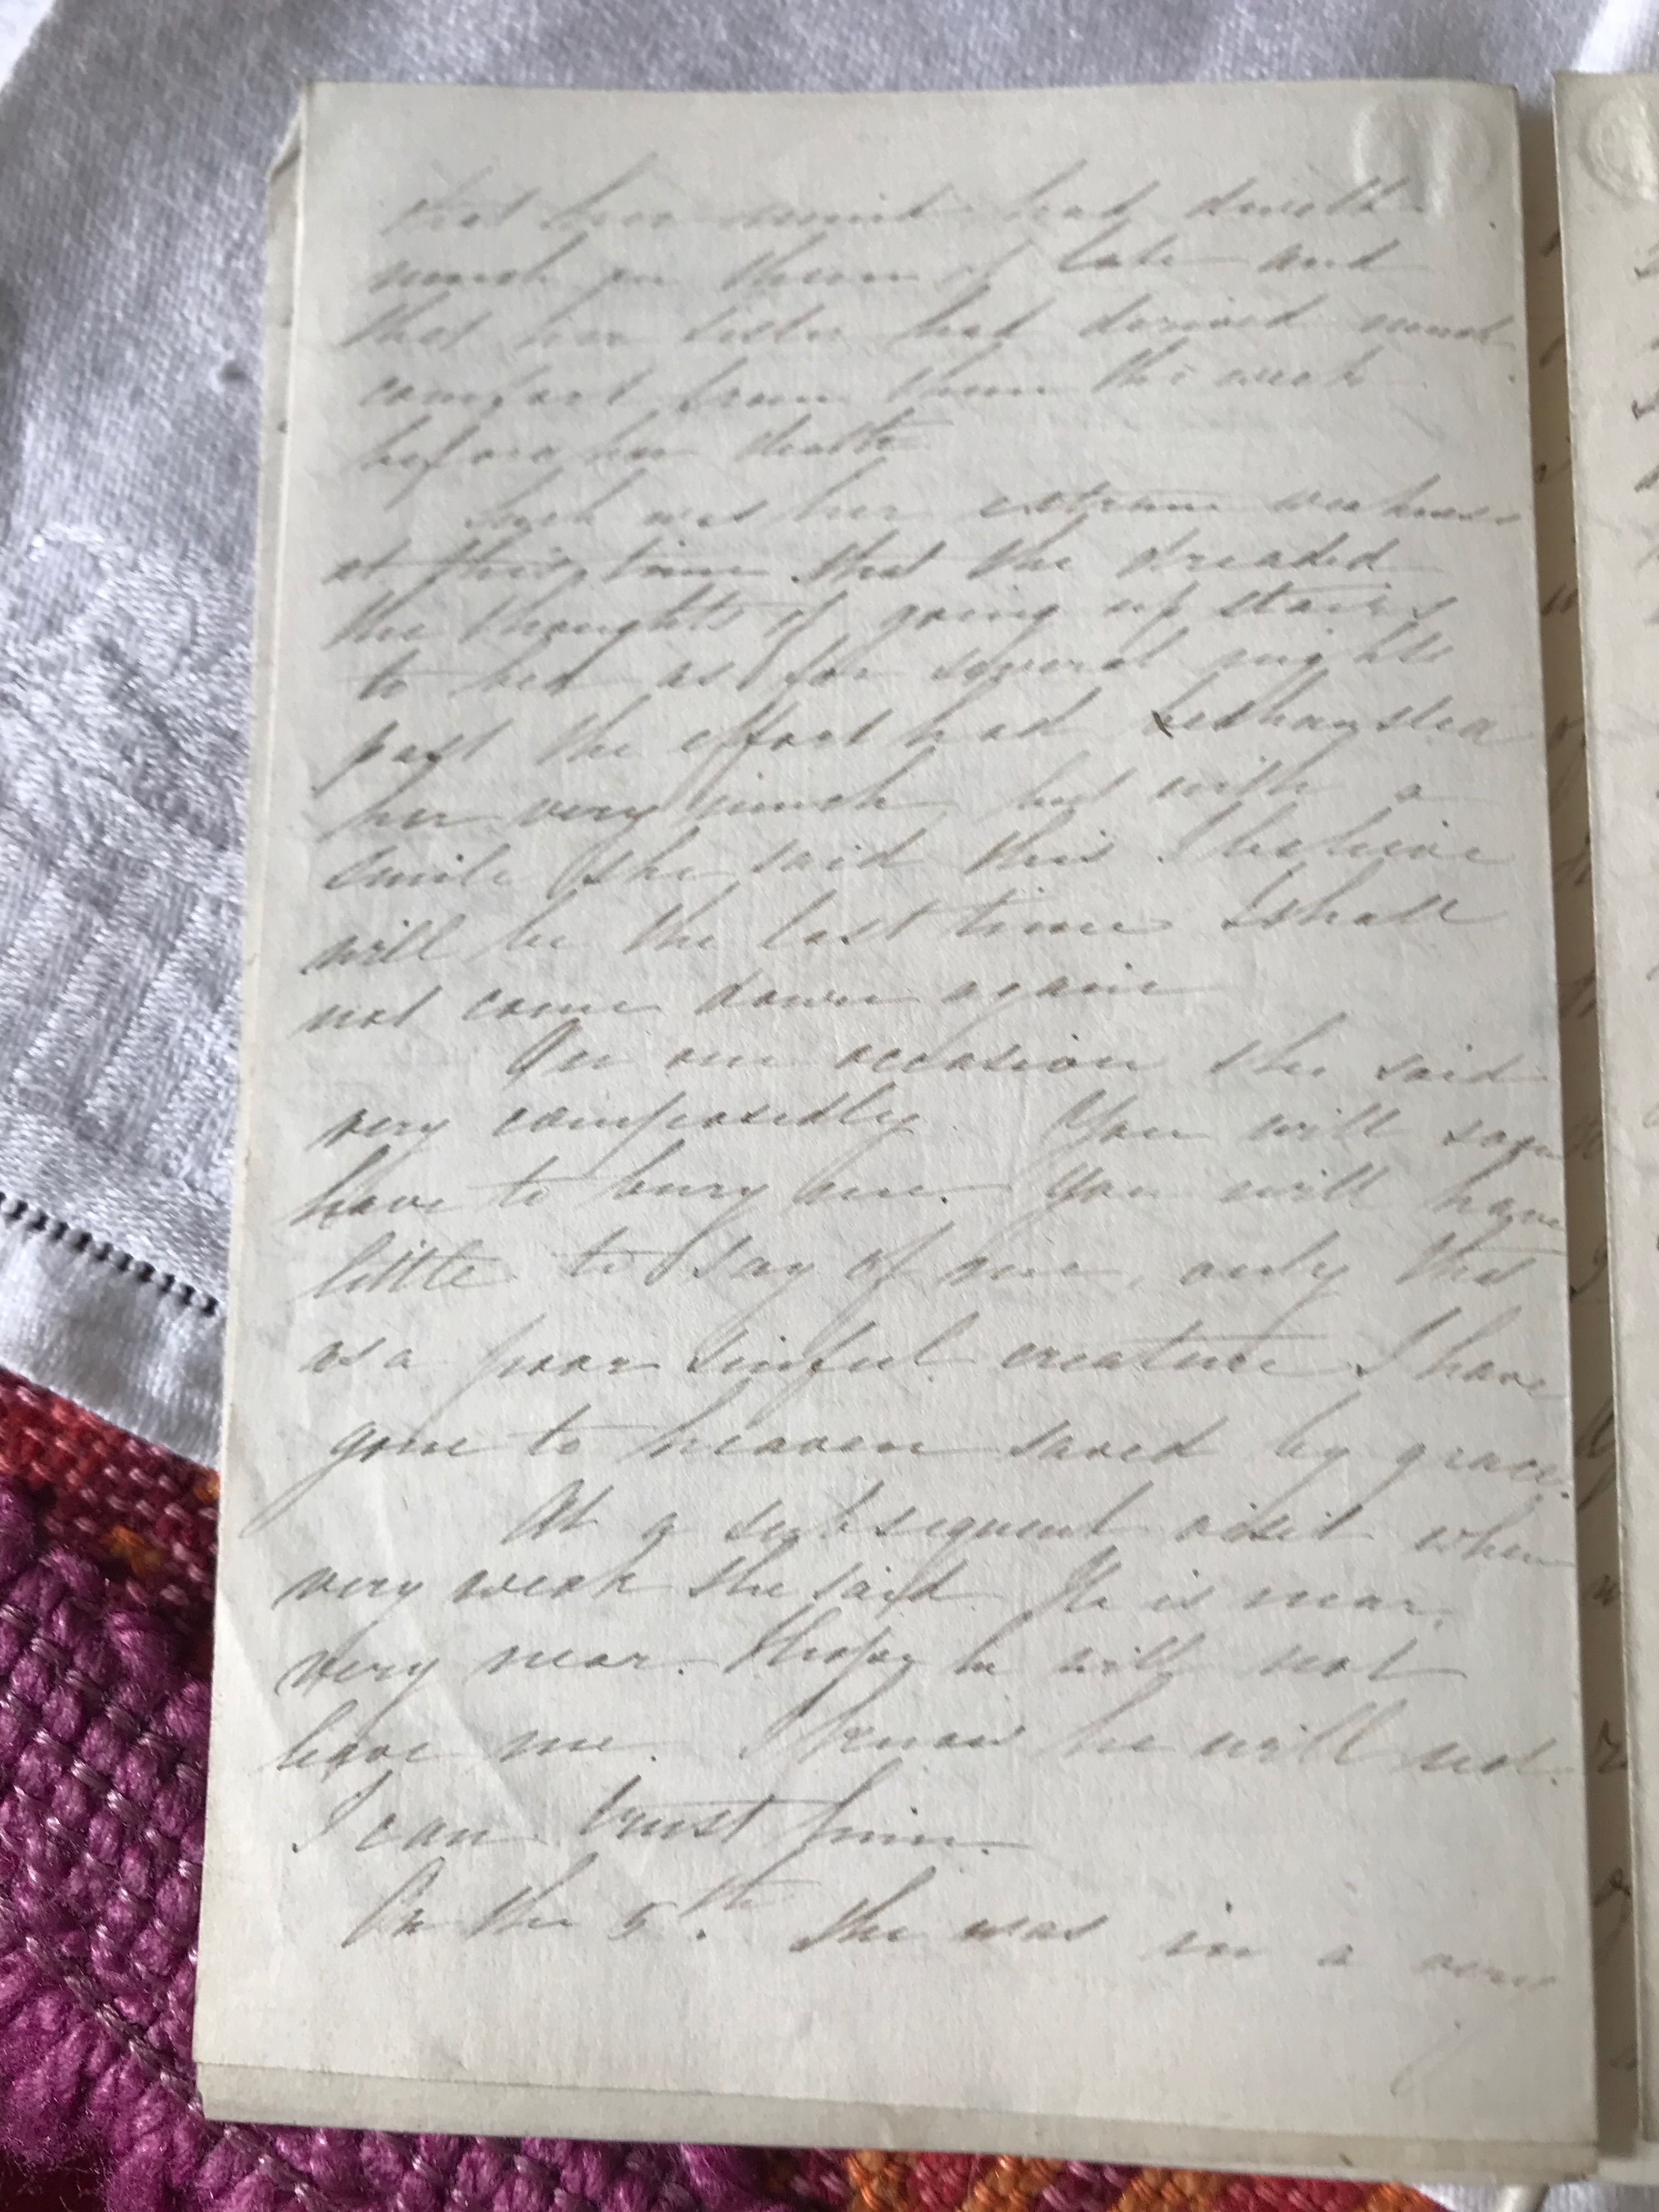 that her mind had dwelt
much on them of late and
that her sister had derived much
comfort from them the week
before her death
Such was her extreme weakness
at this time that she dreaded
the thoughts of going up stairs
to bed as for several nights
past the effort had exhausted
her very much, but with a
smile she said this I believe
will be the last time I shall
not come down again
On one occasion she said
very composedly. You will soon
have to bury me. You will have
little to say of me, only that
as a poor sinful creature I have
gone to heaven saved by grace.
At a subsequent visit when
very weak she said. He is near,
very near. I hope he will not
leave me. I know he will not.
I can trust him.
On the 5th. she was in a very